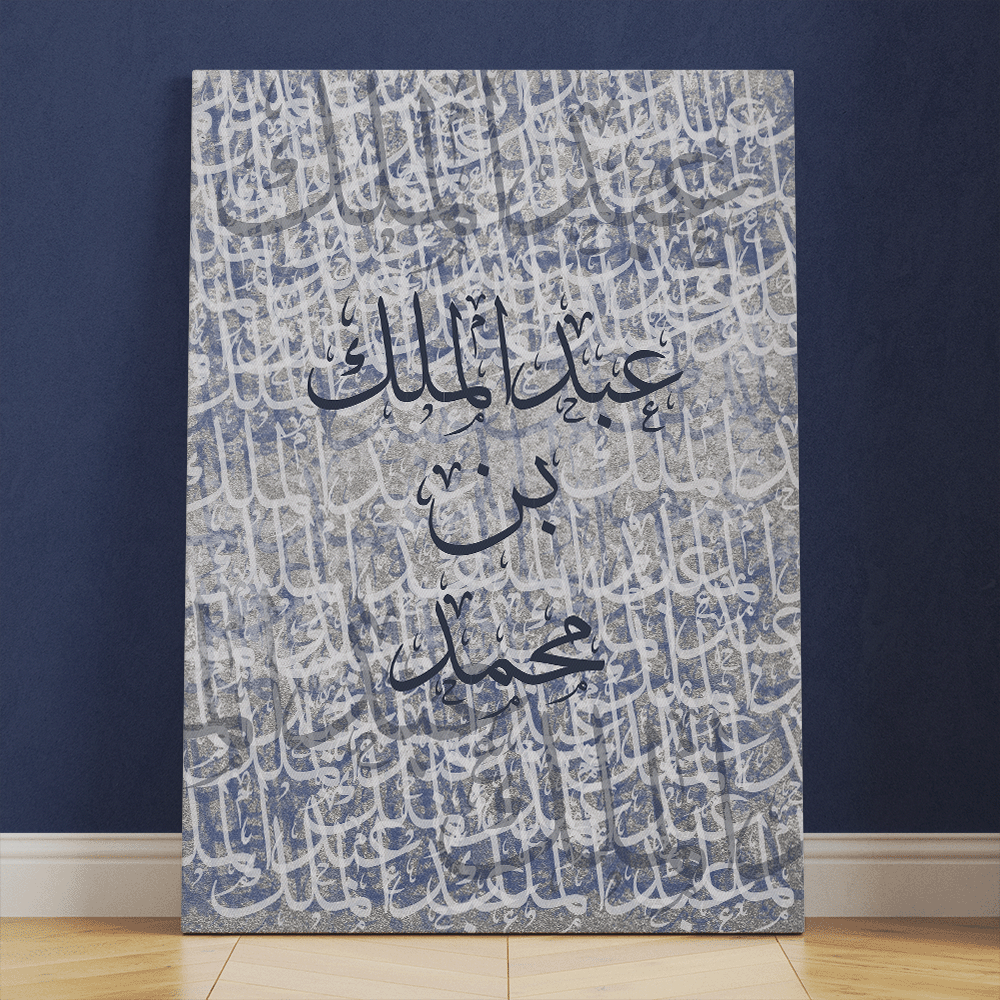 عبدالملك
بن
محمد